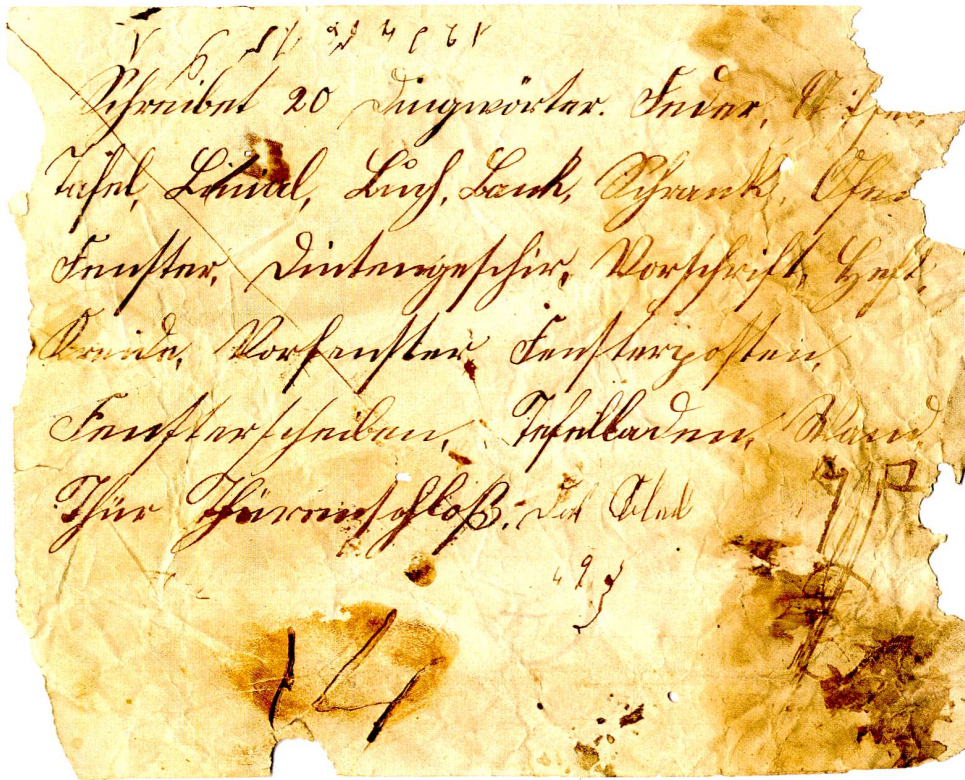 Schreibet 20 Dingwörter. Feder,
Tafel, Lineal, Buch, Bank, Schrank, Ofen
Fenster, Dintengeschir, Vorschrift, Heft,
Kreide, Vorfenster, Fensterposten,
Fensterscheiben, Tefelladen, Wand
Thür Thürenschloß.
14